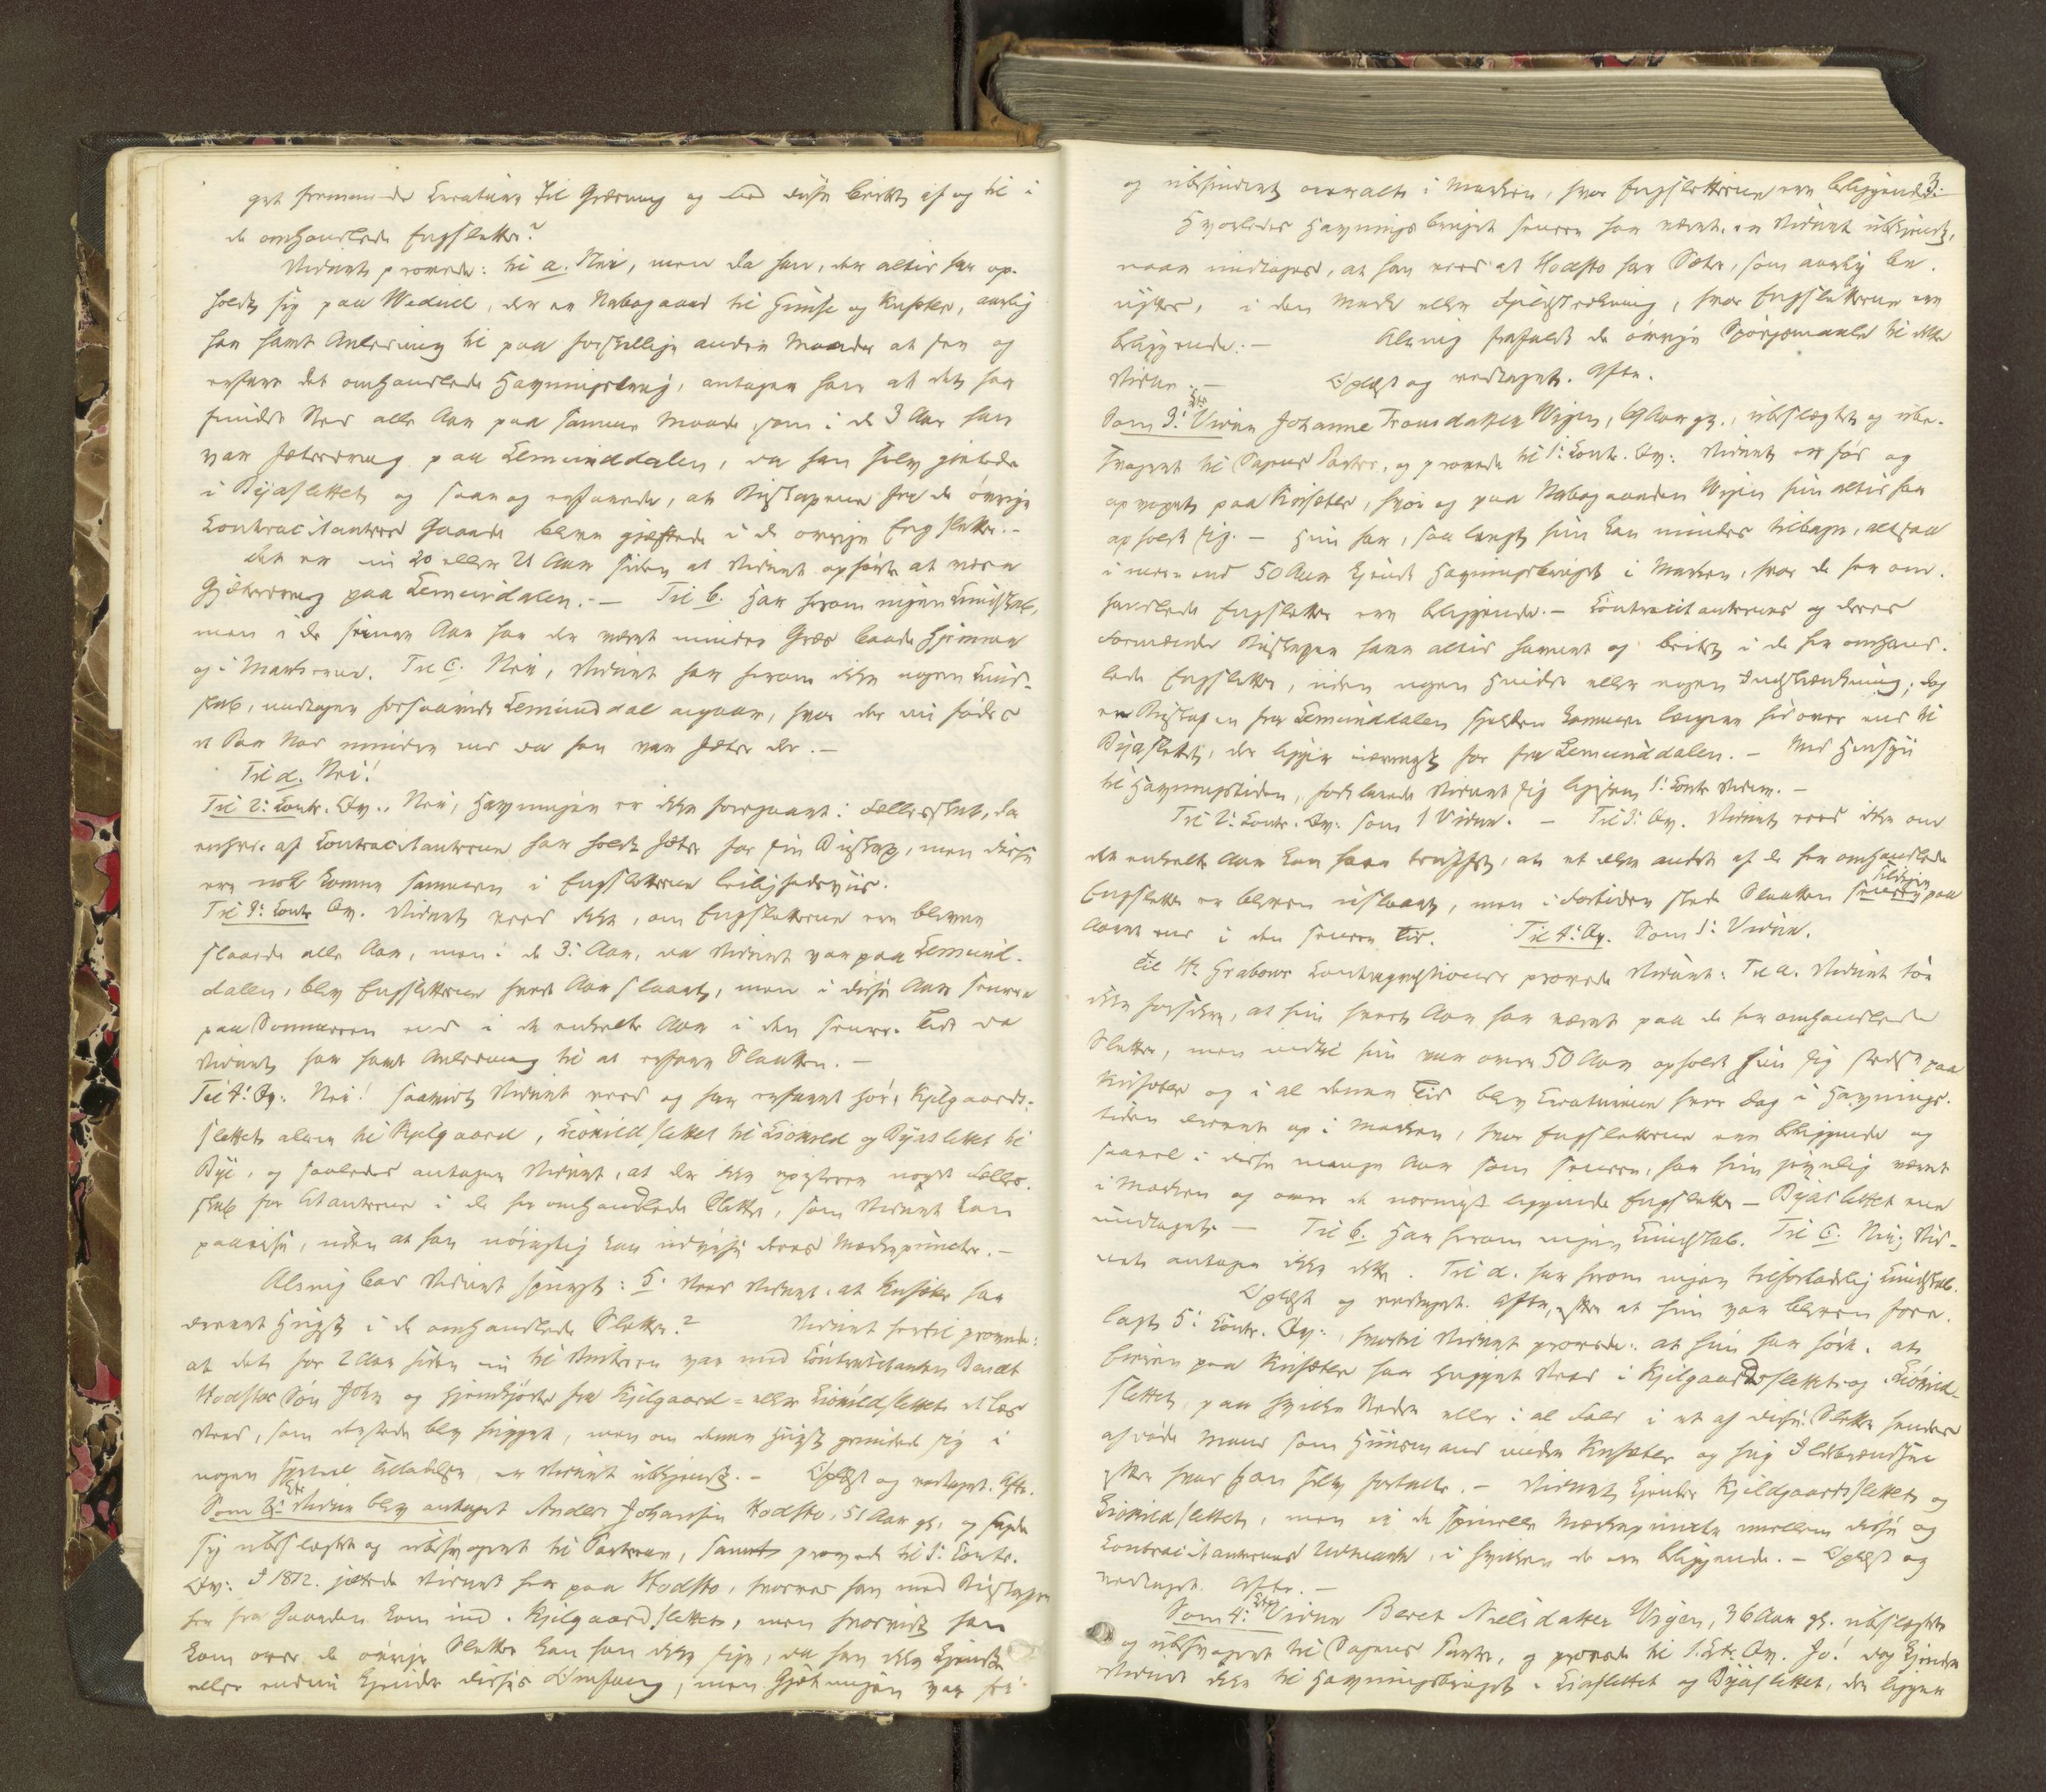 get fremmede Creature til Græsning og lod disse beite af og til i
de omhandlede Engsletter?
Vidnet provede: til a. Nei, men da han, der altid har op-
holdt sig paa Weduel, der er Nabogaard til Huuse og Kusæter, aarlig
har havt Anledning til paa forskjellige andre Maader at see og
erfare det omhandlede Havningsbrug, antager han at det har
fundet Sted alle Aar paa samme Maade som i de 3 Aar han
var Gjæterdreng paa Lemunddalen, da han selv gjætede
i Byasletten og saa og erfarede, at Buskapen fra de øvrige
Contracitanters Gaarde blev gjættede i de øvrige Engsletter. -
Det er nu 20 eller 21 Aar siden at Vidnet ophørte at være
Gjæterdreng paa Lemunddalen. - Til b. Har herom ingen Kundskab,
men i de senere Aar har der været mindre Græs baade hjemme
og i Markerne. Til c. Nei, Vidnet har herom ikke nogen Kund-
skab, undtagen forsaavidt Lemunddal angaar, hvor der nu fødes
et Par Nød mindre end da han var Gjæter der. -
Til d. Nei!
Til 2: Contr. Qv.. Nei, Havningen er ikke foregaaet i Fællesskab, da
enhver af Contracitanterne har holdt Gjæter for sin Buskap, men disse
ere nok komne sammen i Engsletterne leilighedsviis.
Til 3: Contr Qv. Vidnet veed ikke, om Engsletterne ere bleven
slaaede alle Aar, men i de 3: Aar, da Vidnet var paa Lemund-
dalen, blev Engsletterne hvert Aar slaaet, men i disse Aar senere
paa Sommeren end i de enkelte Aar i den senere Tid da
Vidnet har havt Anledning til at erfare Slaatten. -
Til 4: Qv. Nei! Saavidt Vidnet veed og har erfaret hører Kjelgaards-
slettet alene til Kjelgaard, Liökild slettet til Liökild og Byaslettet til
Bye, og saaledes antager Vidnet, at der ikke existerer noget Fælles-
skab for Citanterne i de her omhandlede Sletter, som Vidnet kan
paavise, uden at han nøiagtig kan udvise deres Mærkepuncter. -
Alsvig lod Vidnet spørge: 5. Veed Vidnet, at Kusæter har
drevet Hugst i de omhandlede Sletter? Vidnet hertil provede:
at det for 2 Aar siden nu til Vinteren var med Contracitanten Benedt
Hodstos Søn John og hjemkjørte fra Kjelgaard- eller Liökildslettet et Læs
Veed, som dersteds blev hugget, men om denne Hugst grundede sig i
nogen speciel Tilladelse, er Vidnet ubekjendt. - Oplæst og vedtaget. Aftr.
Som 2: Ctr Vidne blev antaget Anders Johansen Hodsto, 51 Aar gl. og sagde
sig ubeslægtet og ubesvogret til Parterne, samt provede til 1: Contr.
Qv: I 1872. gjætede Vidnet her paa Hodsto, hvorved han med Buskapen
her fra Gaarden kom ind i Kjelgaardslettet, men hvorvidt han
kom over de øvrige Sletter kan han ikke sige, da han ikke kjendte
eller endnu kjender disses Omfang, men Gjætningen var fri
3.
og ubehindret overalt i Marken, hvor Engsletterne ere beliggende.
Hvorledes Havningsbruget senere har været er Vidnet ubekjendt,
naar undtages, at han veed at Hodsto har Sæter, som aarlig be-
nyttes, i den Mark eller Fjeldstrækning, hvor Engsletterne ere
beliggende. - Alsvig frafaldt de øvrige Spørgsmaale til dette
Vidne. - Oplæst og vedtaget. Aftr.
Som 3: Ctr Vidne Johanne Tronsdatter Wigen, 69 Aar gl., ubeslægtet og ube-
svogret til Sagens Parter, og provede til 1: Contr. Qv: Vidnet er født og
opvoxet paa Kusæter, hvor og paa Nabogaarden Wigen hun altid har
opholdt sig. - Hun har, saa langt hun kan mindes tilbage, altsaa
i mere end 50 Aar kjendt Havningsbruget i Marken, hvor de her om-
handlede Engsletter ere beliggende. - Contracitanternes og deres
Formænds Buskaper have altid havnet og beitet i de her omhand-
lede Engsletter, uden nogen Hinder eller nogen Indskrænkning; dog
er Buskapen fra Lemunddalen sjelden kommen længere hidover end til
Byaslettet, der ligger nærmest for fra Lemunddalen. - Med Hensyn
til Havningstiden, forklarede Vidnet sig ligesom 1: Contr Vidne. -
Til 2: Contr. Qv: som 1 Vidne. - Til 3: Qv. Vidnet veed ikke om
det enkelte Aar kan have truffet, at et eller andet af de her omhandlede
Engsletter er bleven uslaaet, men i Fortiden skede Slaatten senere sildigere paa
Aaret end i den senere Tid. Til 4: Qv. Som 1: Vidne.
Til Hr. Grabows Contraqvæstioner provede Vidnet: Til a. Vidnet tør
ikke forsikre, at hun hvert Aar har været paa de her omhandlede
Sletter, men indtil hun var over 50 Aar opholdt hun sig stedse paa
Kusæter og i al denne Tid blev Creaturerne hver Dag i Havnings-
tiden drevet op i Marken, hvor Engsletterne ere beliggende og
saavel i disse mange Aar som senere, har hun jævnlig været
i Marken og over de nærmest liggende Engsletter - Byaslettet ene
undtaget. - Til b. Har herom ingen Kundskab. Til c. Nei; Vid-
net antager ikke dette. Til d. har herom ingen tilforladelig Kundskab.
Oplæst og vedtaget. Aftr., efter at hun var bleven fore-
lagt 5: Contr. Qv:, hvortil Vidnet provede: at hun har hørt, at
Eieren paa Kusæter har hugget Veed i Kjelgaardsslettet og Liökild-
slettet, paa hvilke Steder eller i al Fald i et af disse Sletter hendes
afdøde Mand som Huusmand under Kusæter og hug Ildebrændsel
efter hvad han selv fortalte. - Vidnet kjender Kjeldgaardsslettet og
Liökildslettet, men ei de specielle Mærkepuncter mellem disse og
Contracitanternes Udmark, i hvilken de ere beliggende. - Oplæst og
vedtaget. Aftr. -
Som 4: Ctr Vidne Beret Nielsdatter Wigen, 36 Aar gl. ubeslægtet
og ubesvogret til Sagens Parter, og provede til 1. Ctr. Qv. Jo! dog kjender
Vidnet ikke til Havningsbruget i Liaslettet og Byaslettet, der ligger